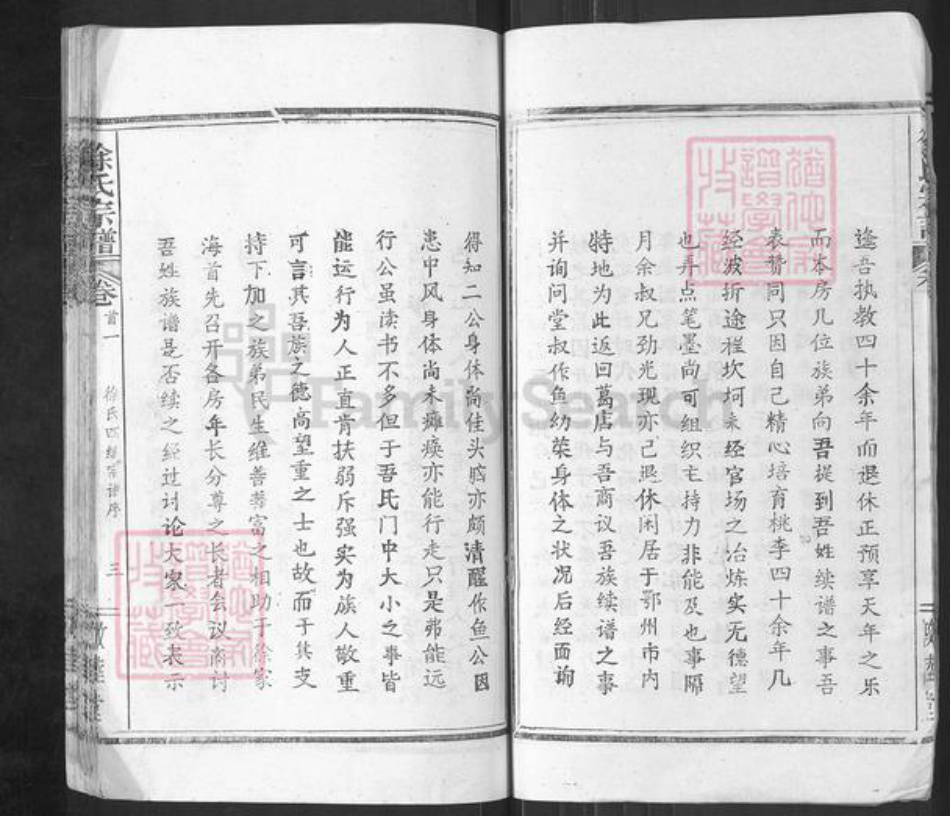 逢吾执教四十余年而退休正预享天年之乐
而本房几位族弟向吾提到吾姓续谱之事吾
表赞同只因自己精心培育桃李四十余年几
经波折途程坎坷未经官场之冶炼实无德望
也弄点笔墨尚可组织主持力非能及也事隔
月余叔兄劲光现亦已退休闲居于鄂州市内
特地为此返回葛店与吾商议吾族续谱之事
并询问堂叔作鱼幼荣身体之状况后经面询
得知二公身体尚佳头脑亦颇清醒作鱼公因
患中风身体尚未瘫痪亦能行走只是弗能远
行公虽读书不多但于吾氏门中大小之事皆
能运行为人正直肯扶弱斥强实为族人敬重
可言其吾族之德高望重之士也故而于其支
持下加之族弟民生维善等富之相助于徐家
海首先召开各房年长分尊之长者会议商讨
吾姓族谱是否续之经过讨论大家一致表示
徐氏宗谱
卷首一
徐氏四续宗谱序
三
FamilySearch